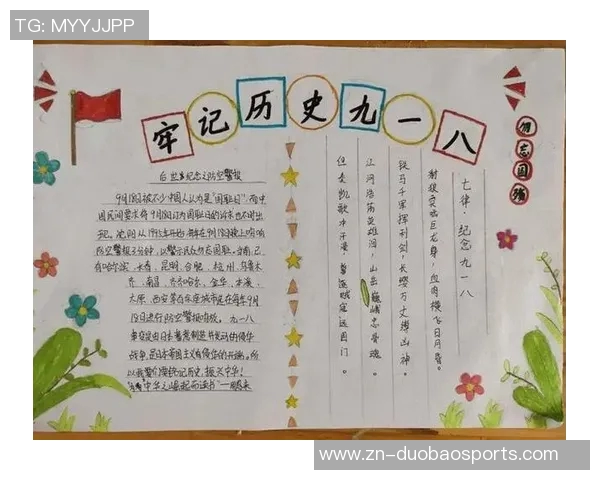 TG: MYYJJPP
牢记历史九一八
勿忘国殇
各地纪念之防空警报
9月18日被不少中国人认为是"国耻日",而中
国民间要求将9月18日订为国耻日的诉求也不时出
现。沈阳从1995年开始,每年在9月18日晚上鸣响
防空警报3分钟,以警示民众勿忘国耻。
有哈尔滨、长春、昆明、合肥、杭州、乌鲁木
齐、南昌、齐齐哈尔、金华、本溪、
太原、西安等百余座城市定在每年9月
18日进行防空警报鸣放。九一八
事变是由日本蓄意制造并发动的侵华
战争,是日本帝国主义侵华的开端。所
以我们须铁记历史,振兴中华!
中华之崛起而读书
七律·纪念九一八
豺狼突袭巨龙身,血肉横飞日月昏。
铁马千军挥利剑,长缨万丈缚凶神。
江河浩荡英雄泪,山岳巍峨忠骨魂。
但奏凯歌冲云霄,誓逐贼寇远国门。
www.zn-duobaosports.com